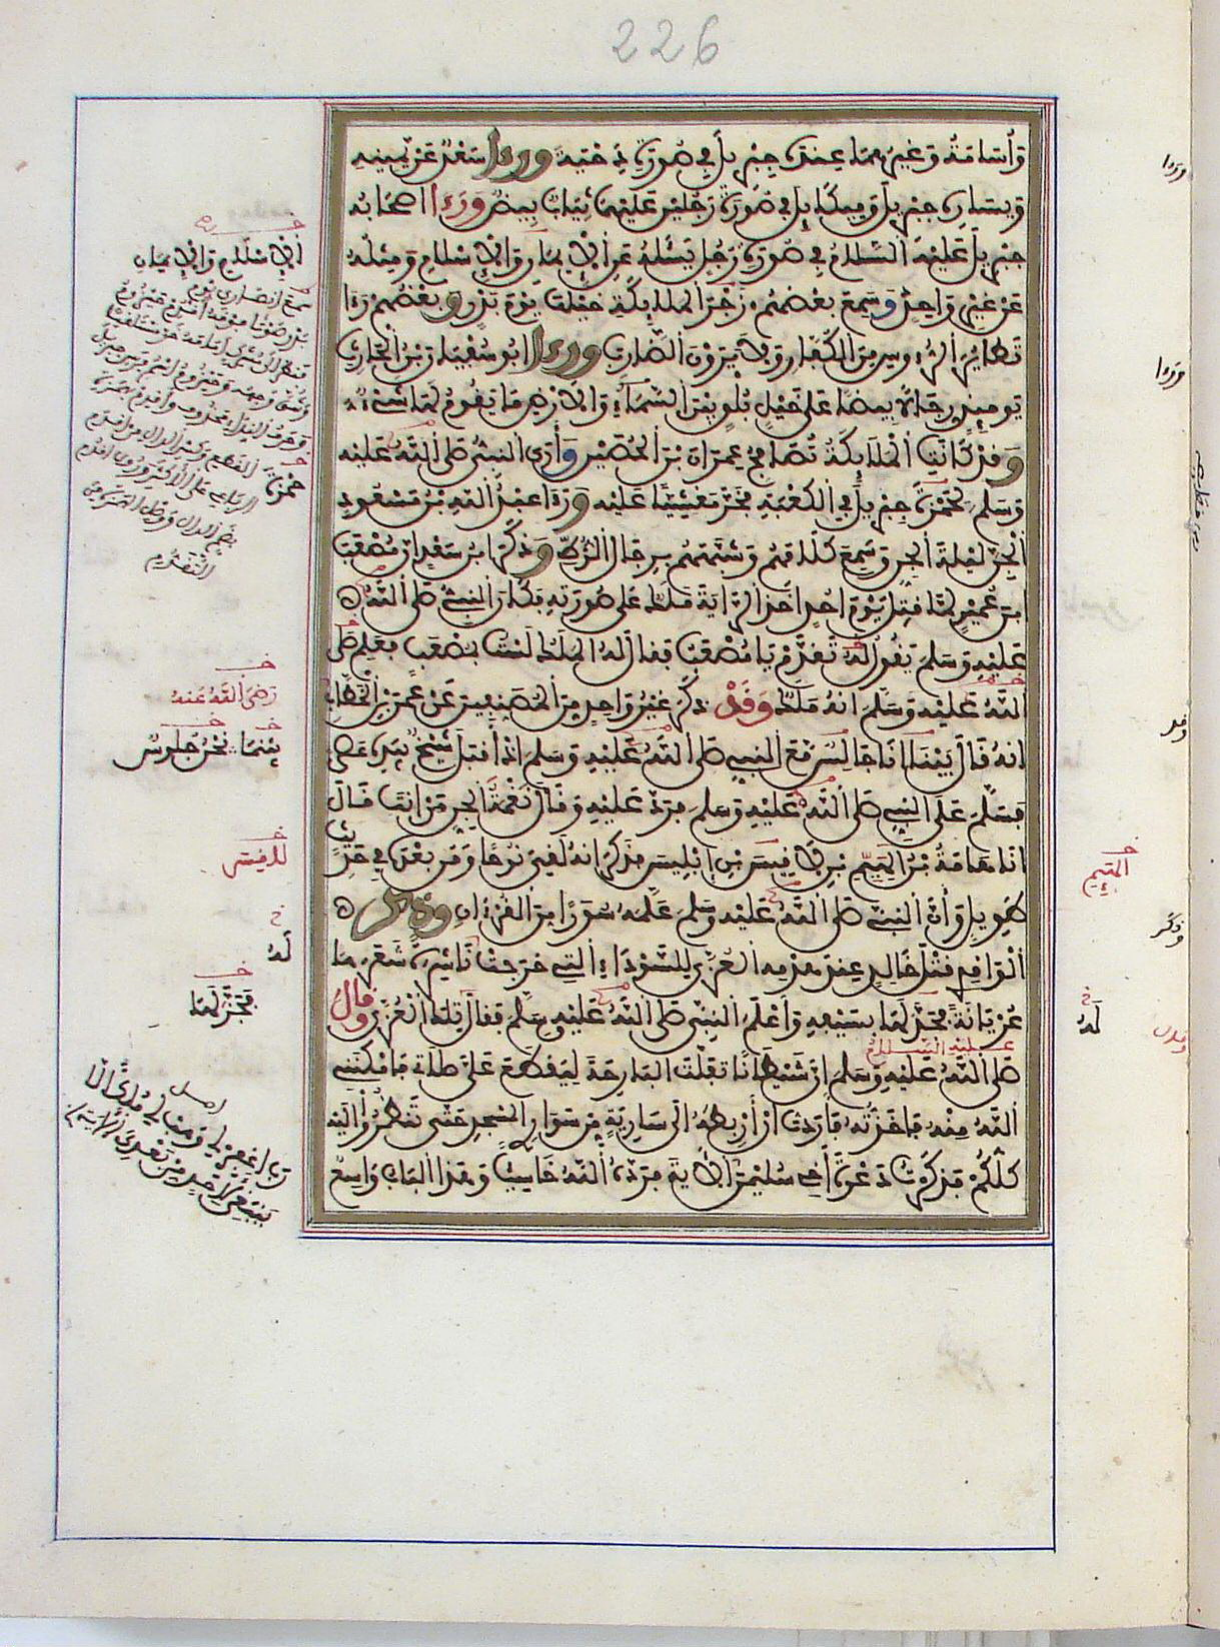 226
وأسامة وغيرهما عنده جبريل في صورة دحية ورءا سعد عن يمينه
ويساره جبريل وميكايل في صورة رجلين عليهما ثياب بيض ورءا اصحابه
جبريل عليه السلام في صورة رجل يسئله عن
عن غير واحد وسمع بعضهم زجر الملائكة خيلها يوم بدر وبعضهم رءا
تطاير الرءوس من الكفار ولا يرون الضارب ورءا ابو سفين بن الحارث
يوميذ رجالا بيضا على خيل بلق بين السماء والارض ما يقوم لها شيء
وقد كانت الملائكة تصافح عمران بن الحصين وأرى النبي صلى الله عليه
وسلم لحمزة جبريل في الكعبة فخر مغشيا عليه ورءا عبد الله بن مسعود
الجن ليلة الجن وسمع كلامهم وشبههم برجال الزط وذكر ابن سعد ان مصعب
ابن عمير لما قتل يوم احد اخذ الراية ملك على صورته فكان النبي صلى الله
عليه وسلم يقول له تقدم يا مصعب فقال له الملك لست بمصعب فعلم صلى
الله عليه وسلم انه ملك وقد ذكر غير واحد من المصنفين عن عمر بن الخطاب
انه قال بينا انا جالس مع النبي صلى الله عليه وسلم اذ أقبل شيخ بيده عصى
فسلم على النبي صلى الله عليه وسلم فرد عليه وقال نغمة الجن من انت قال
انا هامة بن الهيم بن لاقيس بن إبليس فذكر انه لقي نوحا ومن بعده في حديث
طويل وأن النبي صلى الله عليه وسلم علمه سورا من القرءان وذكر
الواقدي قتل خالد عند هدمه العزى للسوداء التي خرجت ناشرة شعرها
عريانة فجزلها بسيفه وأعلم النبي صلى الله عليه وسلم فقال تلك العزى وقال
عليه السلام
صلى الله عليه وسلم ان شيطانا تفلت البارحة ليقطع علي صلاتي فامكنني
الله منه فاخذته فأردت أن أربطه الى سارية من سوار المسجد حتى تنظروا اليه
كلكم فذكرت دعوة أخي سليمن الاية فرده الله خاسيا وهذا الباب واسع
رضي الله عنه
بينما نحن جلوس
لاقيس
له
فجزلها
اصل
رب اغفر لي وهب لي ملكا لا
ينبغي لاحد من بعدي
الهيم
له